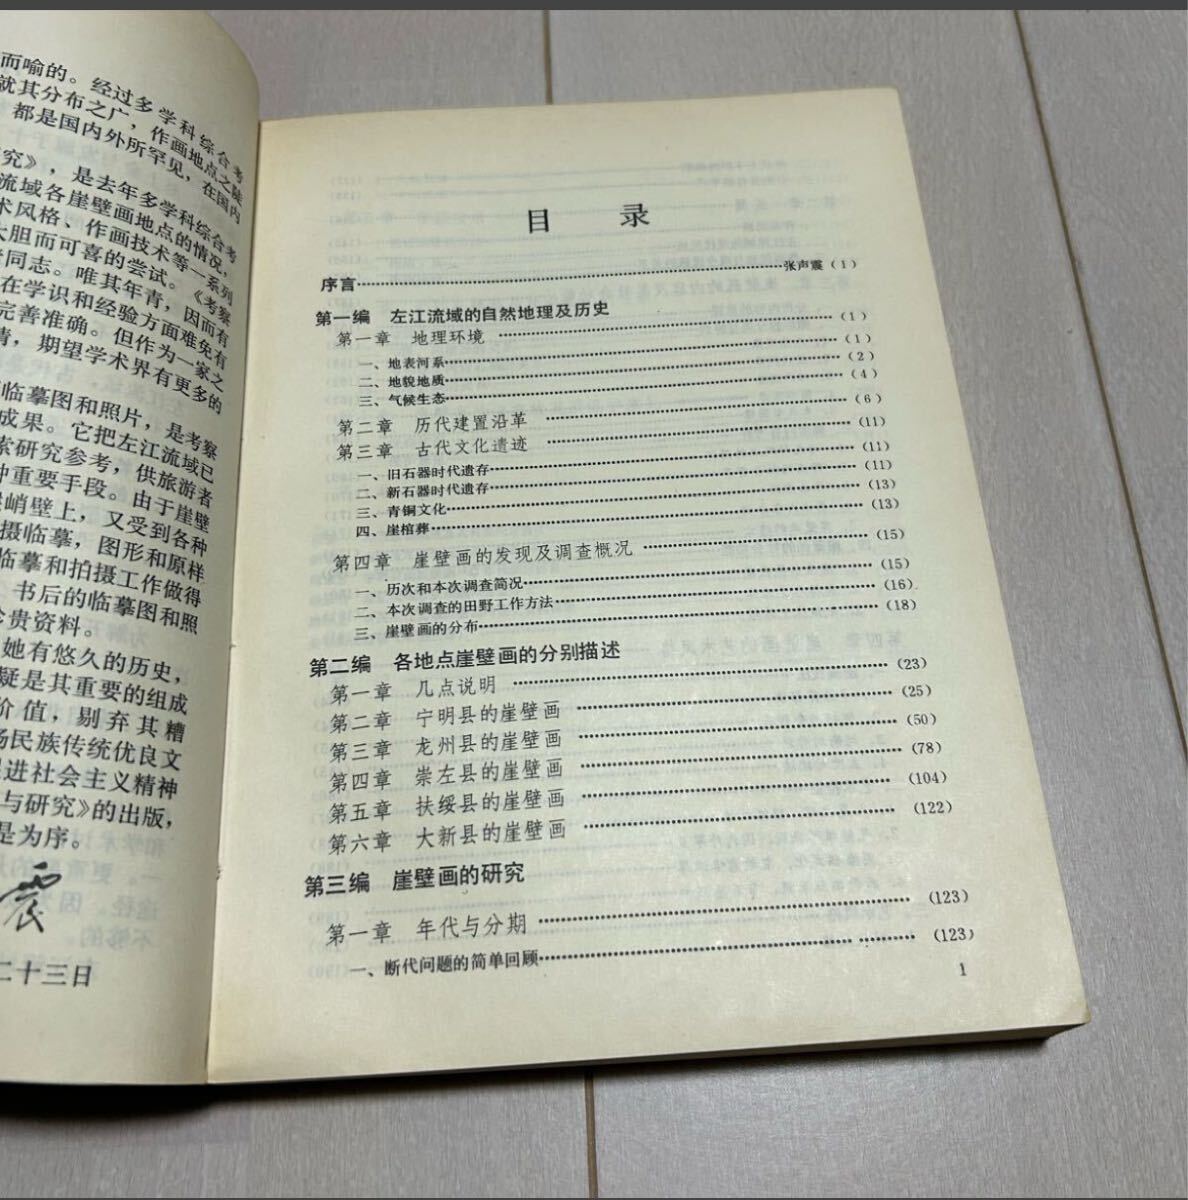 而喻的。经过多学科综合考
就其分布之广，作画地点之陡
都是国内外所罕见，在国内
究》，是去年多学科综合考
流域各崖壁画地点的情况，
术风格、作画技术等一系列
大胆而可喜的尝试。《考察
同志。唯其年青，因而有
在学识和经验方面难免有
完善准确。但作为一家之
请，期望学术界有更多的
临摹图和照片，是考察
成果。它把左江流域已
索研究参考，供旅游者
种重要手段。由于崖壁
峭壁上，又受到各种
摄临摹，图形和原样
临摹和拍摄工作做得
书后的临摹图和照
珍贵资料。
她有悠久的历史，
疑是其重要的组成
价值，剔弃其糟
扬民族传统优良文
进社会主义精神
与研究》的出版，
是为序。
震
二十三日
目 录
序言……张声震（1）
第一编 左江流域的自然地理及历史
第一章 地理环境……（1）
一、地表河系……（1）
二、地貌地质……（2）
三、气候生态……（4）
第二章 历代建置沿革……（6）
第三章 古代文化遗迹……（11）
一、旧石器时代遗存……（11）
二、新石器时代遗存……（11）
三、青铜文化……（13）
四、崖棺葬……（13）
第四章 崖壁画的发现及调查概况……（15）
一、历次和本次调查简况……（15）
二、本次调查的田野工作方法……（16）
三、崖壁画的分布……（18）
第二编 各地点崖壁画的分别描述
第一章 几点说明……（23）
第二章 宁明县的崖壁画……（25）
第三章 龙州县的崖壁画……（50）
第四章 崇左县的崖壁画……（78）
第五章 扶绥县的崖壁画……（104）
第六章 大新县的崖壁画……（122）
第三编 崖壁画的研究
第一章 年代与分期……（123）
一、断代问题的简单回顾……（123）
1